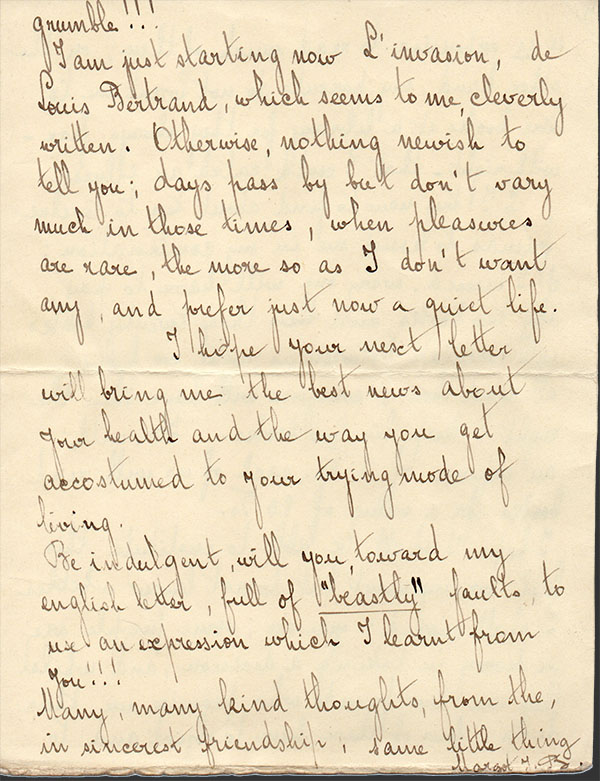 grumble!!!
I am just starting now L'invasion, de
Louis Bertrand, which seems to me, cleverly
written. Otherwise, nothing newish to
tell you; days pass by but don't vary
much in those times, when pleasures
are rare, the more so as I don't want
any, and prefer just now a quiet life.
I hope your next letter
will bring me the best news about
your health and the way you get
accostumed to your trying mode of
living.
Be indulgent, will you, toward my
english letter, full of "beastly" faults, to
use an expression which I learnt from
you!!!
Many, many kind thoughts, from the,
in sincerest friendship, same little thing
Margot